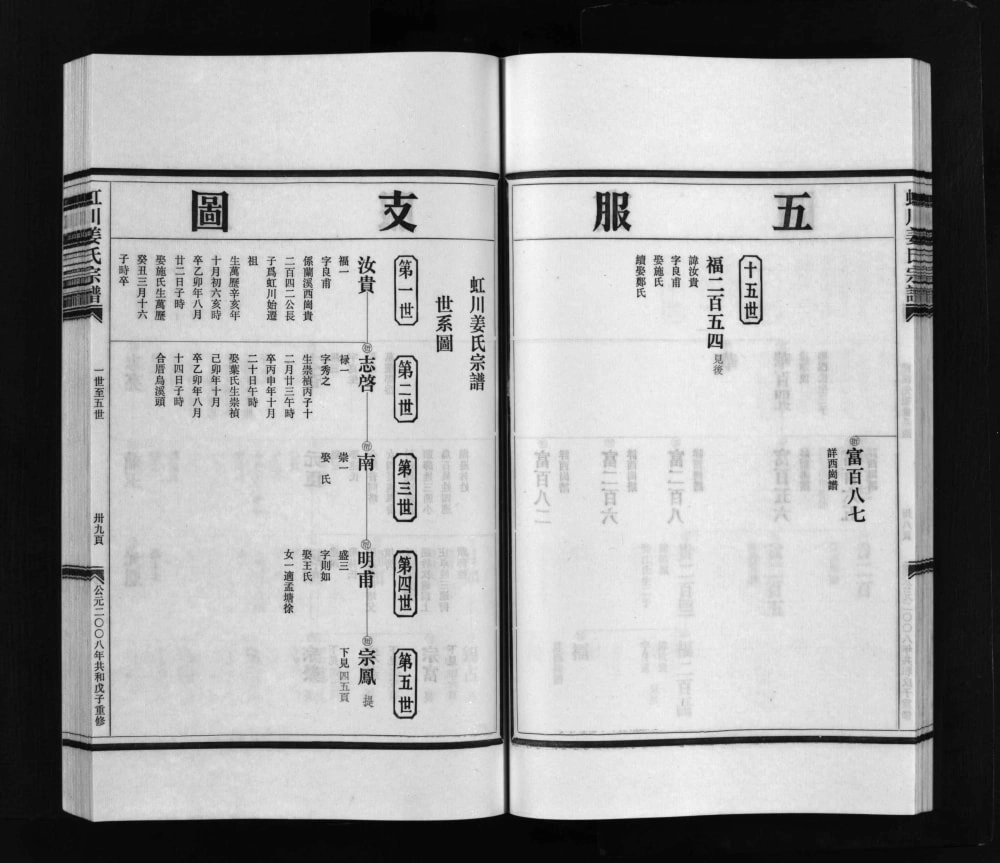 五服
富百八七
詳西崗譜
十五世
福二百五四 見後
諱汝貴
字良甫
娶施氏
續娶鄭氏
支圖
虹川姜氏宗譜
世系圖
第一世
第二世
第三世
第四世
第五世
汝貴
福一
字良甫
係蘭溪西崗貴
二百四二公長
子爲虹川始遷
祖
生萬歷辛亥年
十月初六亥時
卒乙卯年八月
廿二日子時
娶施氏生萬歷
癸丑三月十六
子時卒
志啓
禄一
字秀之
生崇禎丙子十
二月廿三午時
卒丙申年十月
二十日午時
娶葉氏生崇禎
己卯年十月
卒乙卯年八月
十四日子時
合厝烏溪頭
南
崇一
娶 氏
明甫
盛三
字則如
娶王氏
女一適孟塘徐
宗鳳 提
下見四五頁
虹川姜氏宗譜
一世至五世
卅九頁
公元二〇〇八年共和戊子重修